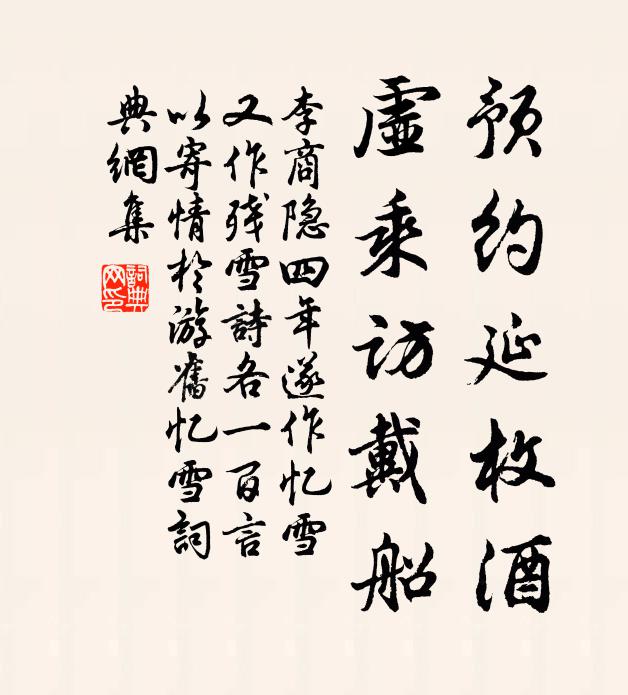 预约延枚酒
虚乘访戴船
李商隐四年遂作忆雪
又作残雪詩各一百言
以寄情於游舊忆雪詞
典網集
詞典
网印